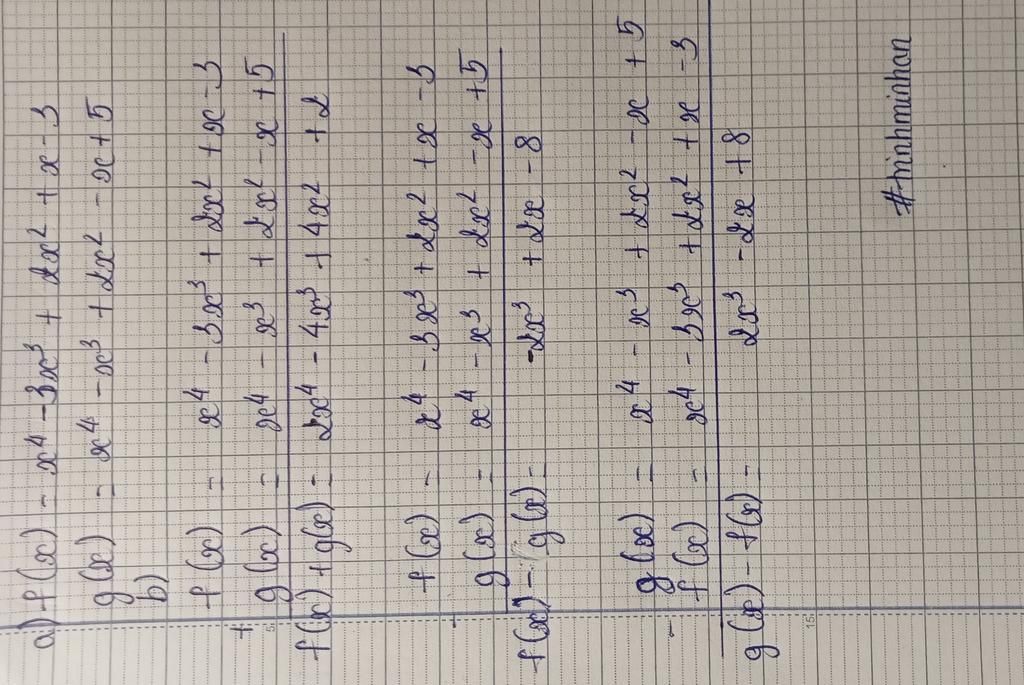 a) f(x) = x⁴ - 3x³ + 2x² + x - 3
g(x) = x⁴ - x³ + 2x² - x + 5
b)
f(x) = x⁴ - 3x³ + 2x² + x - 3
+
g(x) = x⁴ - x³ + 2x² - x + 5
f(x) + g(x) = 2x⁴ - 4x³ + 4x² + 2
f(x) = x⁴ - 3x³ + 2x² + x - 3
-
g(x) = x⁴ - x³ + 2x² - x + 5
f(x) - g(x) = -2x³ + 2x - 8
g(x) = x⁴ - x³ + 2x² - x + 5
-
f(x) = x⁴ - 3x³ + 2x² + x - 3
g(x) - f(x) = 2x³ - 2x + 8
#minhminhan
5
15